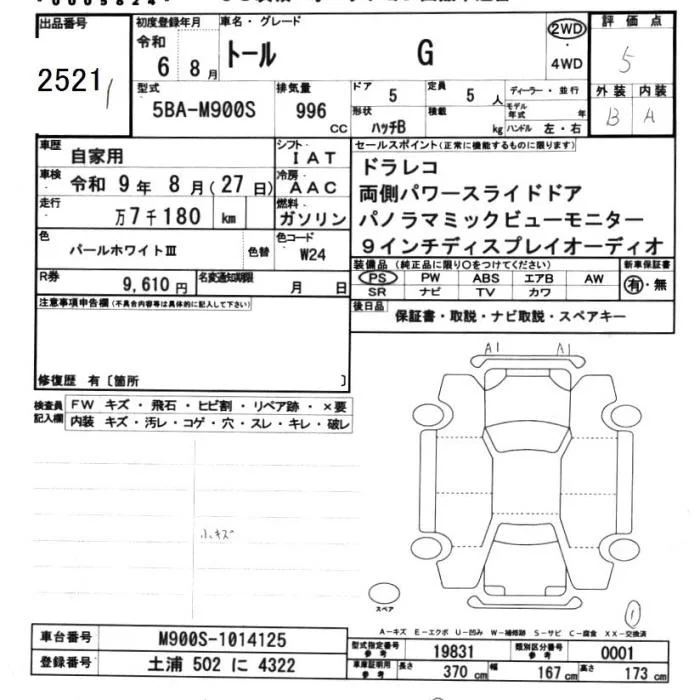 出品番号 初度登録年月 車名・グレード 評価点
2521 令和 6 8月 トール G 2WD・4WD 5
型式 排気量 ドア 定員 ディーラー・並行 外装 内装
5BA-M900S 996 CC 5 5人 モデル年式 年 B A
形状 積載 ハッチB kg ハンドル 左・右
車歴 自家用 シフト IAT セールスポイント(正常に機能するものに限ります)
車検 令和 9年 8月(27日) 冷房 AAC ドラレコ
両側パワースライドドア
走行 万7千180 km 燃料 ガソリン パノラマミックビューモニター
色 パールホワイトⅢ 色替 色コード W24 9インチディスプレイオーディオ
R券 9,610円 名変通知期限 月 日 装備品(純正品に限り○をつけてください) 新車保証書
PS PW ABS エアB AW 有・無
SR ナビ TV カワ
注意事項申告欄(不具合内容等は具体的に記入して下さい) 後日品 保証書・取説・ナビ取説・スペアキー
A1 A1
修復歴 有〔箇所 〕
検査員記入欄 FW キズ・飛石・ヒビ割・リペア跡・×要
内装 キズ・汚レ・コゲ・穴・スレ・キレ・破レ
小キズ
スペア
1
A-キズ E-エクボ U-凹み W-補修跡 S-サビ C-腐食 XX-交換済
車台番号 M900S-1014125 型式指定番号 参考 19831 類別区分番号 参考 0001
登録番号 土浦 502 に 4322 車庫証明用 参考 長さ 370 cm 幅 167 cm 高さ 173 cm